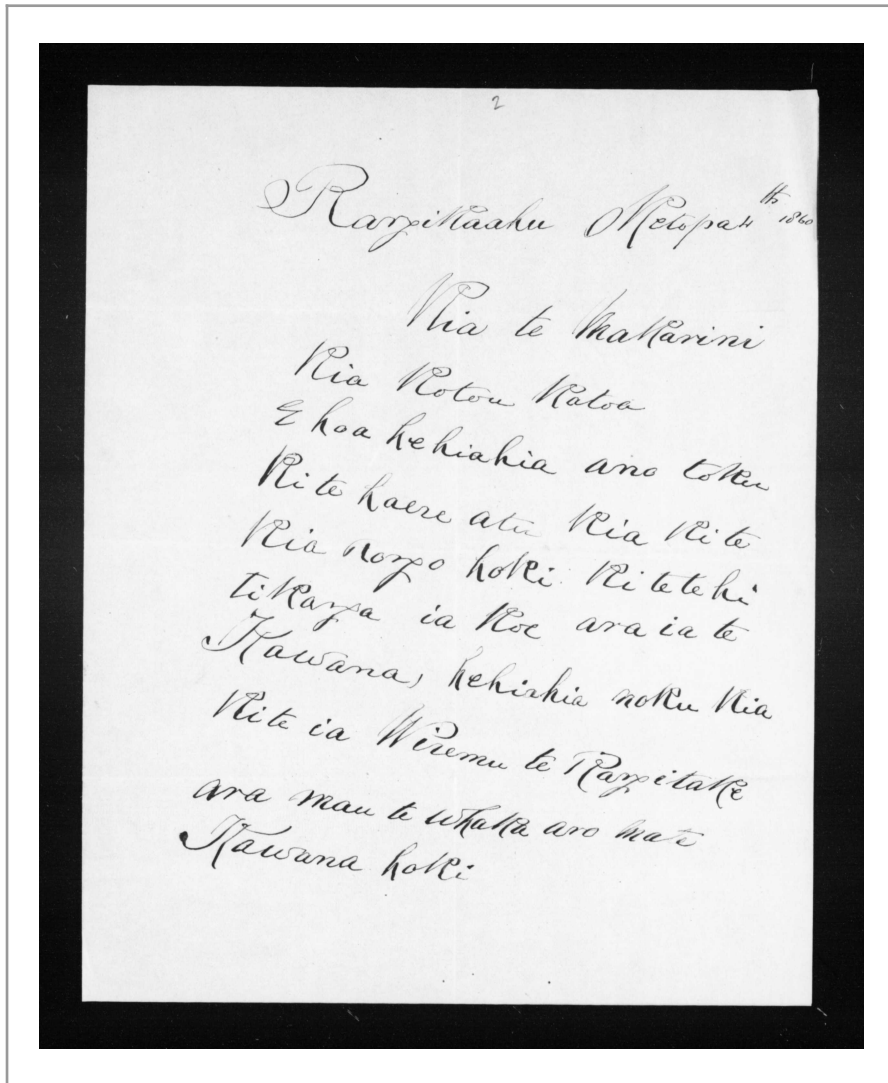 2
Rangikaahu Oketopa 4th 1860
Kia te Makarini
Kia Kotou Katoa
E hoa hehiahia ano toku
Kite haere atu Kia Kite
Kia rongo hoki Kitetehi
tikanga ia Koe ara ia te
Kawana, hehiahia noku Kia
Kite ia Wiremu te Rangitake
ara mau te whaka aro mate
Kawana hoki